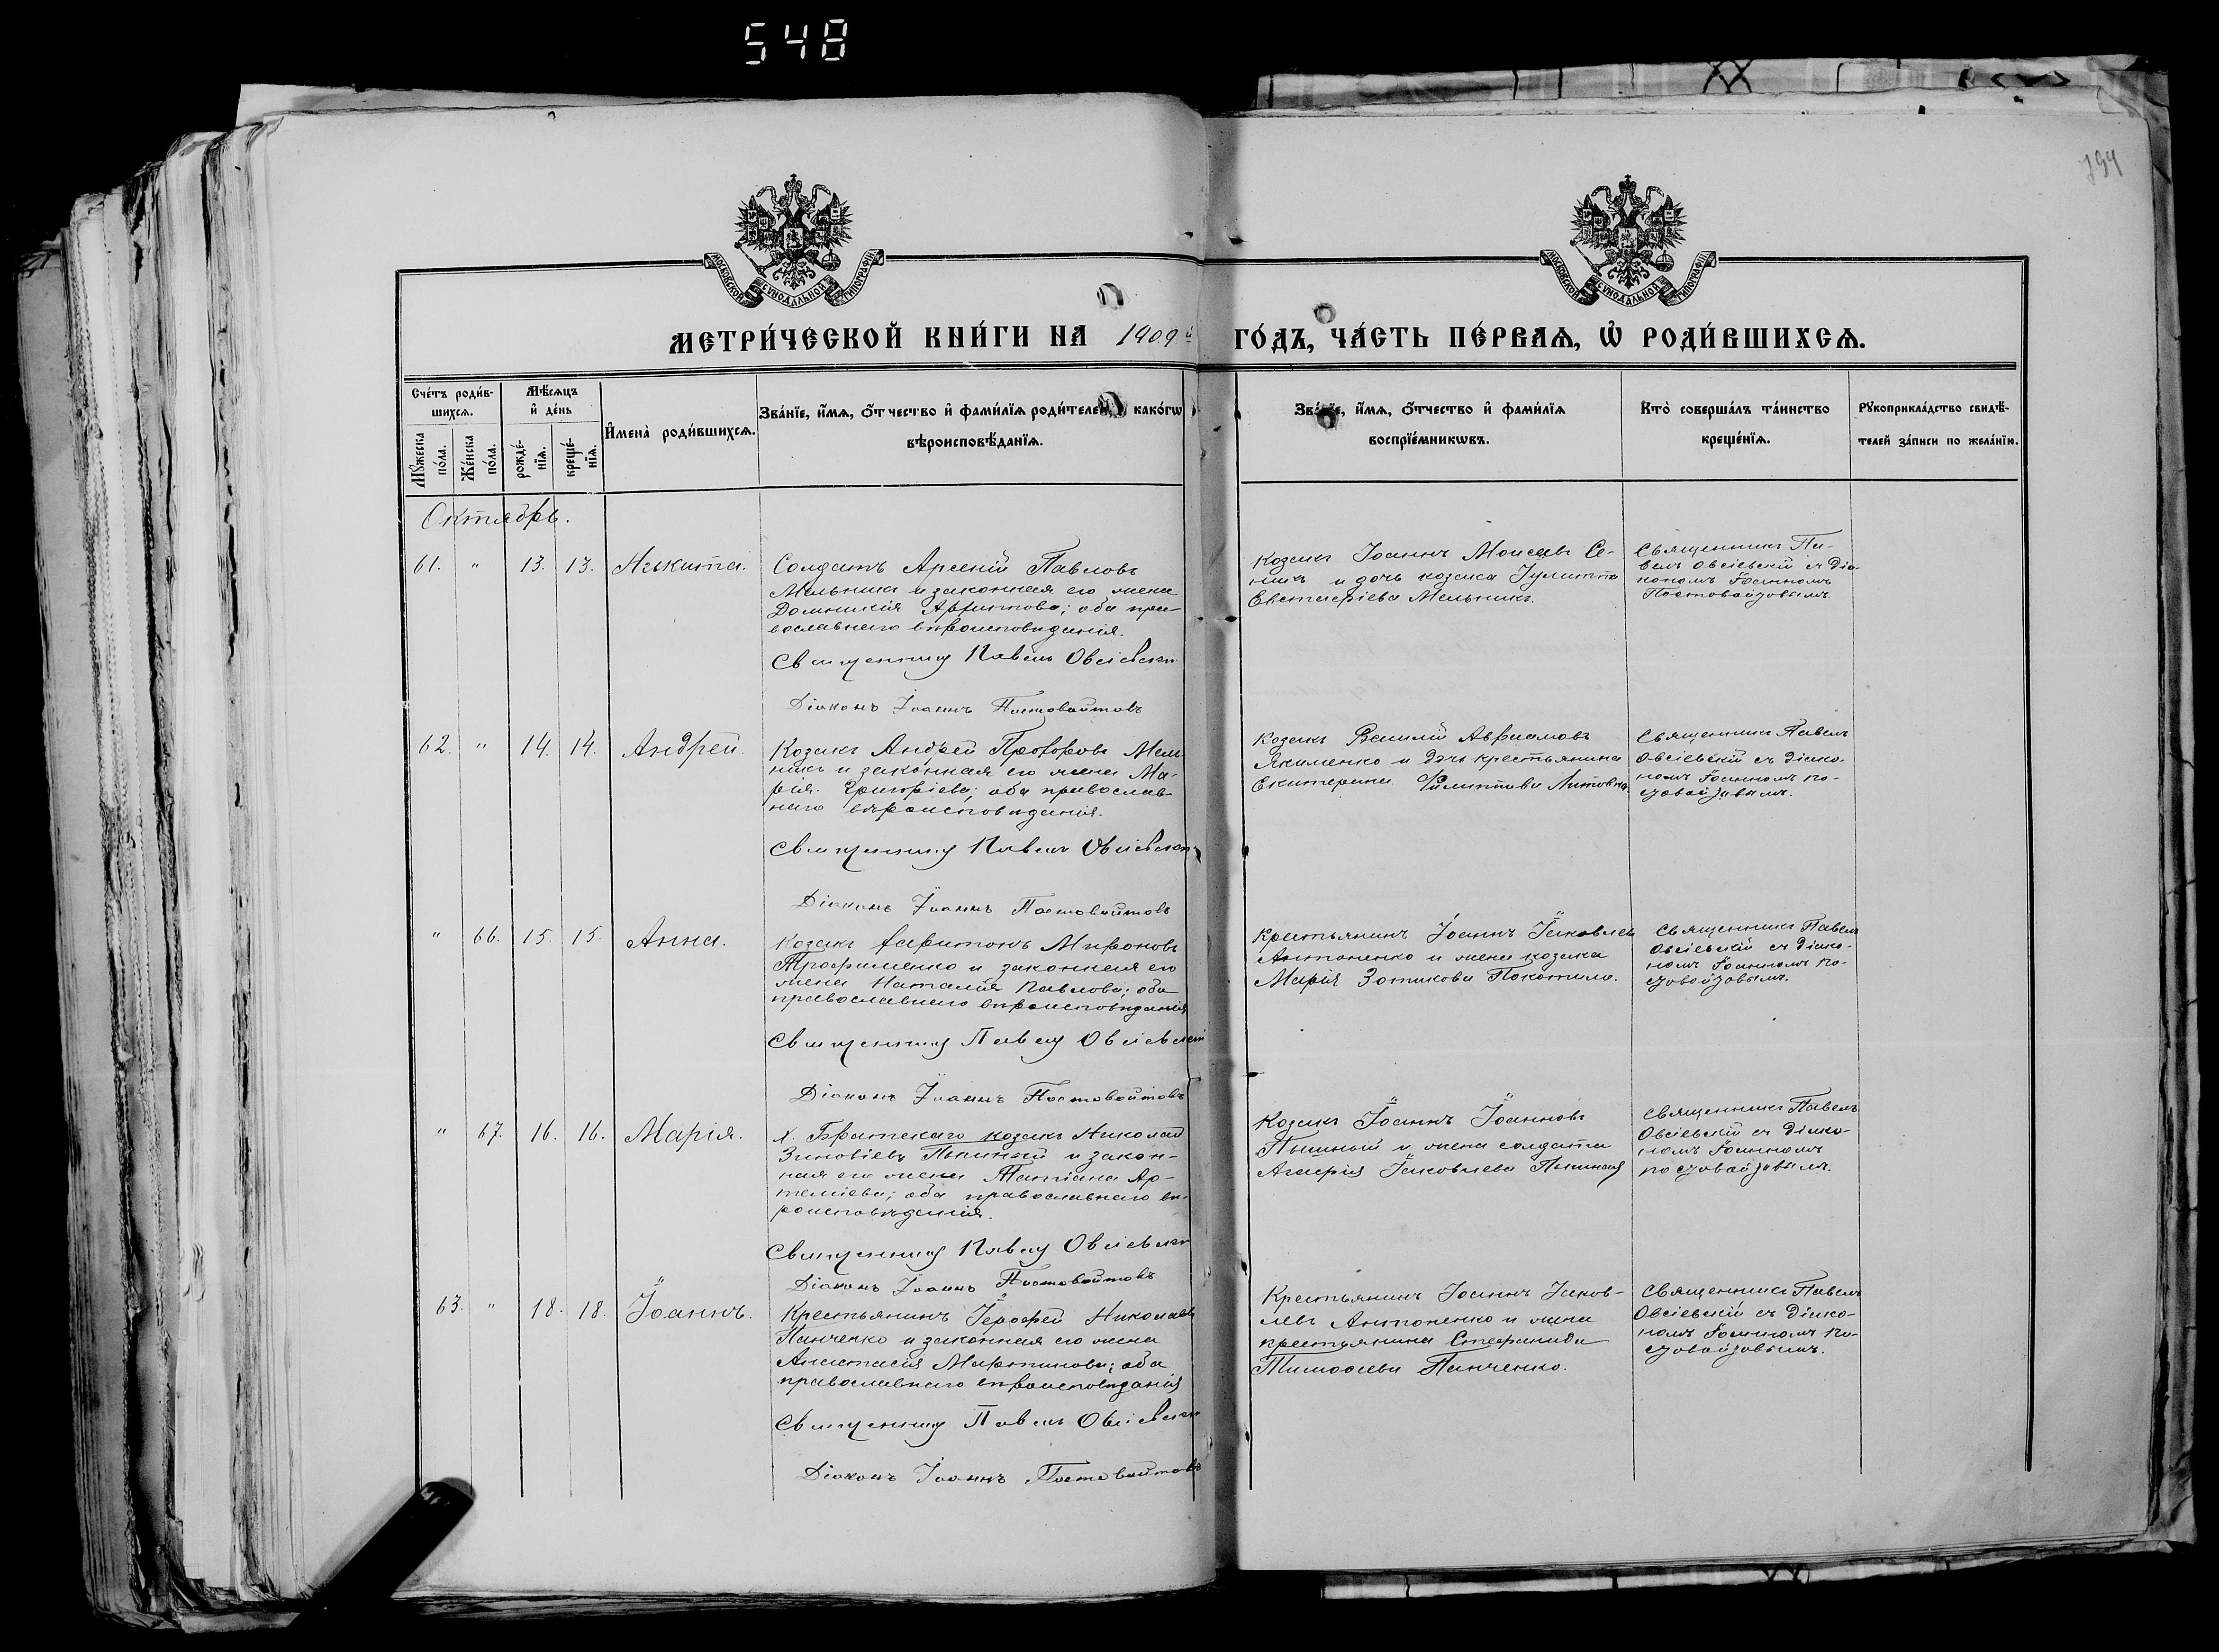 548
794
МОСКОВСКОЙ СѴНОДАЛЬНОЙ ТИПОГРАФІИ
МОСКОВСКОЙ СѴНОДАЛЬНОЙ ТИПОГРАФІИ
МЕТРИ́ЧЕСКОЙ КНИ́ГИ НА 1909 й ГО́ДЪ, ЧА́СТЬ ПЕ́РВАѦ, Ѡ҆ РОДИ́ВШИХСѦ.
Сче́тъ роди́в-
шихсѧ.
Мꙋ́жеска по́ла.
Же́нска по́ла.
Мѣ́сѧцъ
и҆ де́нь
рожде́-
нїѧ.
креще́-
нїѧ.
И҆мена̀ роди́вшихсѧ.
Зва́нїе, и҆́мѧ, ѻ҆́тчество и҆ фами́лїѧ роди́телей, како́гѡ
вѣроисповѣ́данїѧ.
Зва́нїе, и҆́мѧ, ѻ҆́тчество и҆ фами́лїѧ
воспрїе́мникѡвъ.
Кто̀ соверша́лъ та́инство
креще́нїѧ.
Рꙋкоприкла́дство свидѣ́-
телей за́писи по жела́нїю.
Октябрь.
61. " 13. 13. Никита.
Солдатъ Арсеній Павловъ
Мельникъ и законная его жена
Домникія ; оба пра-
вославнаго вѣроисповѣданія.
Священникъ Павелъ Овсіевскій
Діаконъ Іоаннъ Постовойтовъ
Козакъ Іоаннъ Моисеевъ Се-
никъ и дочь козака Іулитта
Евстафіева Мельникъ.
Священникъ Па-
велъ Овсіевскій съ Діа-
кономъ Іоанномъ
Постовойтовымъ.
62. " 14. 14. Андрей.
Козакъ Андрей Прохоровъ Мель-
никъ и законная его жена Ма-
рія Григоріева; оба православ-
наго вѣроисповѣданія.
Священникъ Павелъ Овсіевскій
Діаконъ Іоаннъ Постовойтовъ
Козакъ Василій Авраамовъ
Якименко и дочь крестьянина
Екатерина Филиппова Литовка.
Священникъ Павелъ
Овсіевскій съ Діако-
номъ Іоанномъ По-
стовойтовымъ.
" 66. 15. 15. Анна.
Козакъ Харитонъ Мироновъ
Трофименко и законная его
жена Наталія Павлова; оба
православнаго вѣроисповѣданія
Священникъ Павелъ Овсіевскій
Діаконъ Іоаннъ Постовойтовъ
Крестьянинъ Іоаннъ Іаковлевъ
Антоненко и жена козака
Марія Зотикова Покотило.
Священникъ Павелъ
Овсіевскій съ Діако-
номъ Іоанномъ По-
стовойтовымъ.
" 67. 16. 16. Марія.
х. Братскаго козакъ Николай
Зиновіевъ Пышный и закон-
ная его жена Татіана Ар-
теміева; оба православнаго вѣ-
роисповѣданія.
Священникъ Павелъ Овсіевскій
Діаконъ Іоаннъ Постовойтовъ
Козакъ Іоаннъ Іоанновъ
Пышный и жена солдата
Агафія Іаковлева Пышная
Священникъ Павелъ
Овсіевскій съ Діако-
номъ Іоанномъ
Постовойтовымъ.
63. " 18. 18. Іоаннъ.
Крестьянинъ Іерофей Николаевъ
Панченко и законная его жена
Анастасія Мартинова; оба
православнаго вѣроисповѣданія
Священникъ Павелъ Овсіевскій
Діаконъ Іоаннъ Постовойтовъ
Крестьянинъ Іоаннъ Іаков-
левъ Антоненко и жена
крестьянина Стефанида
Тимоѳеева Панченко.
Священникъ Павелъ
Овсіевскій съ Діако-
номъ Іоанномъ По-
стовойтовымъ.